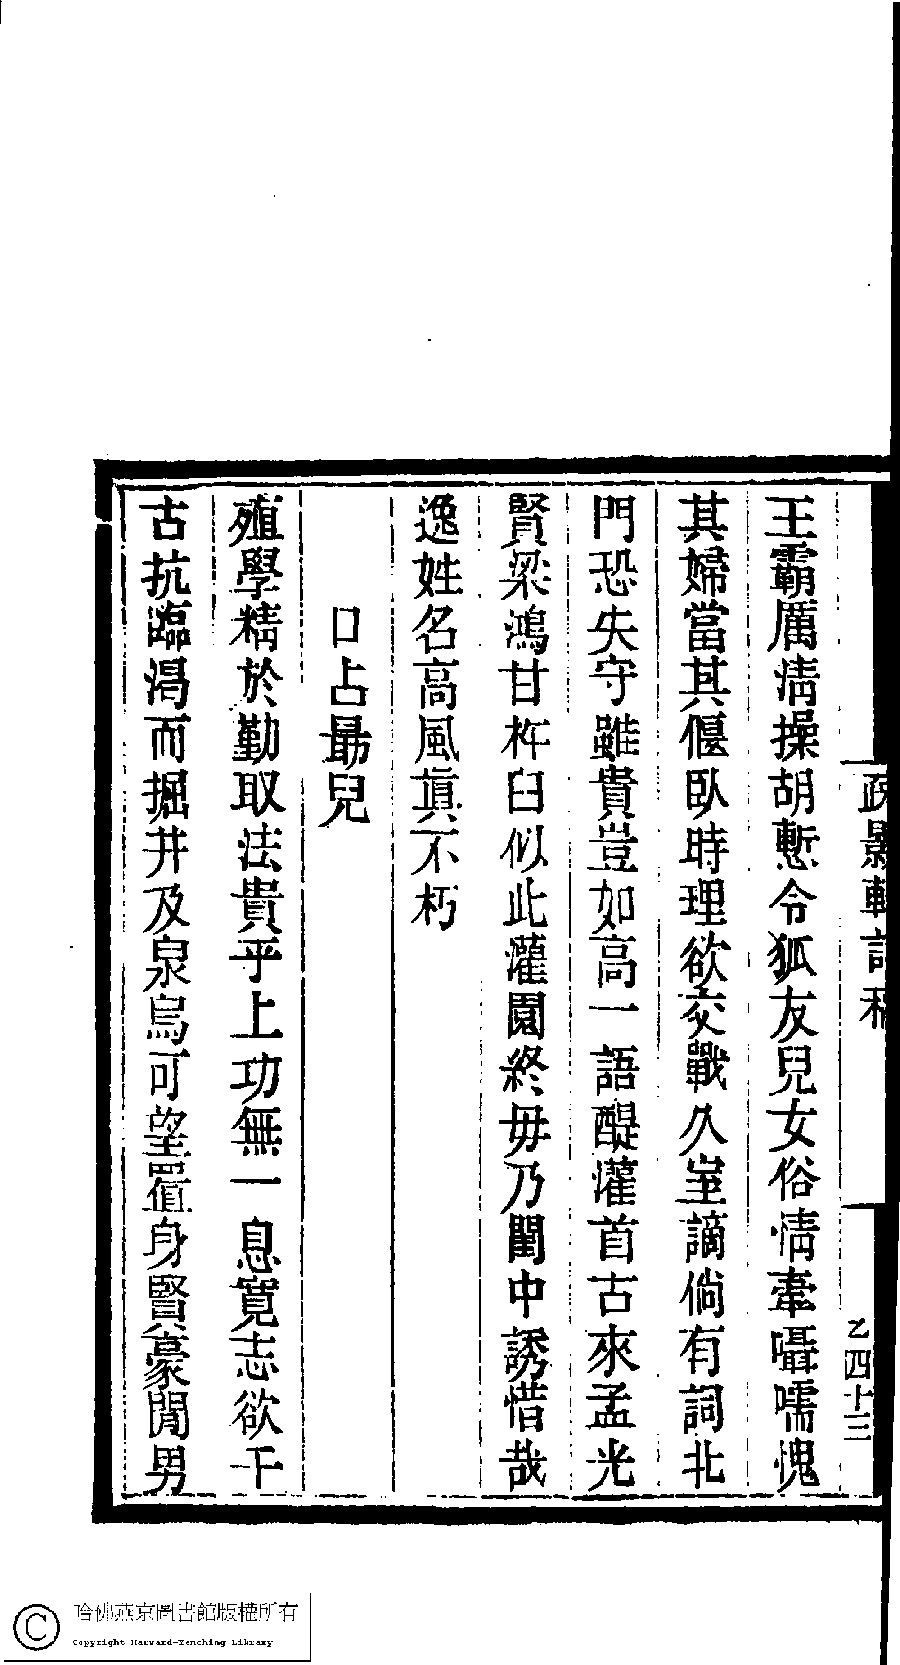 王霸厲清操胡慙令狐友兒女俗情牽囁嚅愧
其婦當其偃臥時理欲交戰久室謫倘有詞北
門恐失守雖貴豈如高一語醍灌首古來孟光
賢梁鴻甘杵臼似此灌園終毋乃閨中誘惜哉
逸姓名高風真不朽
口占勗兒
殖學精於勤取法貴乎上功無一息寬志欲千
古抗臨渴而掘井及泉烏可望置身賢豪間男
疏影軒詩稿
乙四十三
哈佛燕京圖書館版權所有
Copyright Harvard-Yenching Library